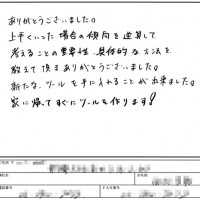 ありがとうございました。
上手くいった場合の傾向を逆算して
考えることの重要性、具体的な方法を
教えて頂きありがとうございました。
新たな、ツールを手に入れることが出来ました。
家に帰ってすぐにツールを作ります!